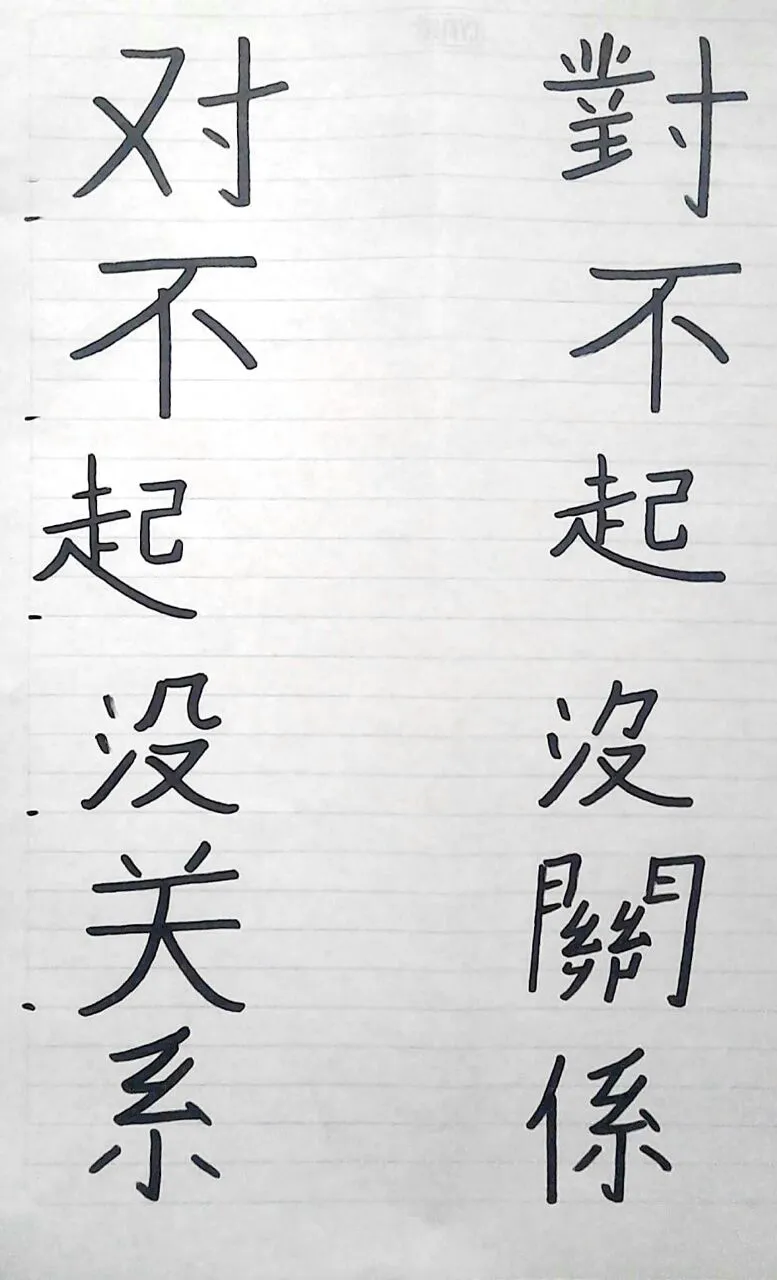 对不起没关系
對不起沒關係